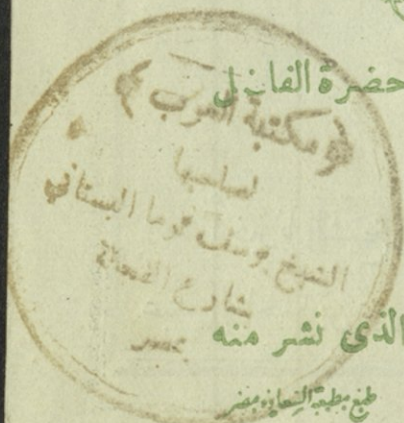 حضرة الفاضل
مكتبة العرب
لصاحبها
الشيخ يوسف توما البستاني
بشارع الفجالة
بمصر
الذى نشر منه
طبع بمطبعة السعادة بمصر